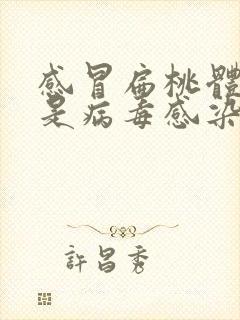 感冒扁桃體
是病毒感染
許昌秀